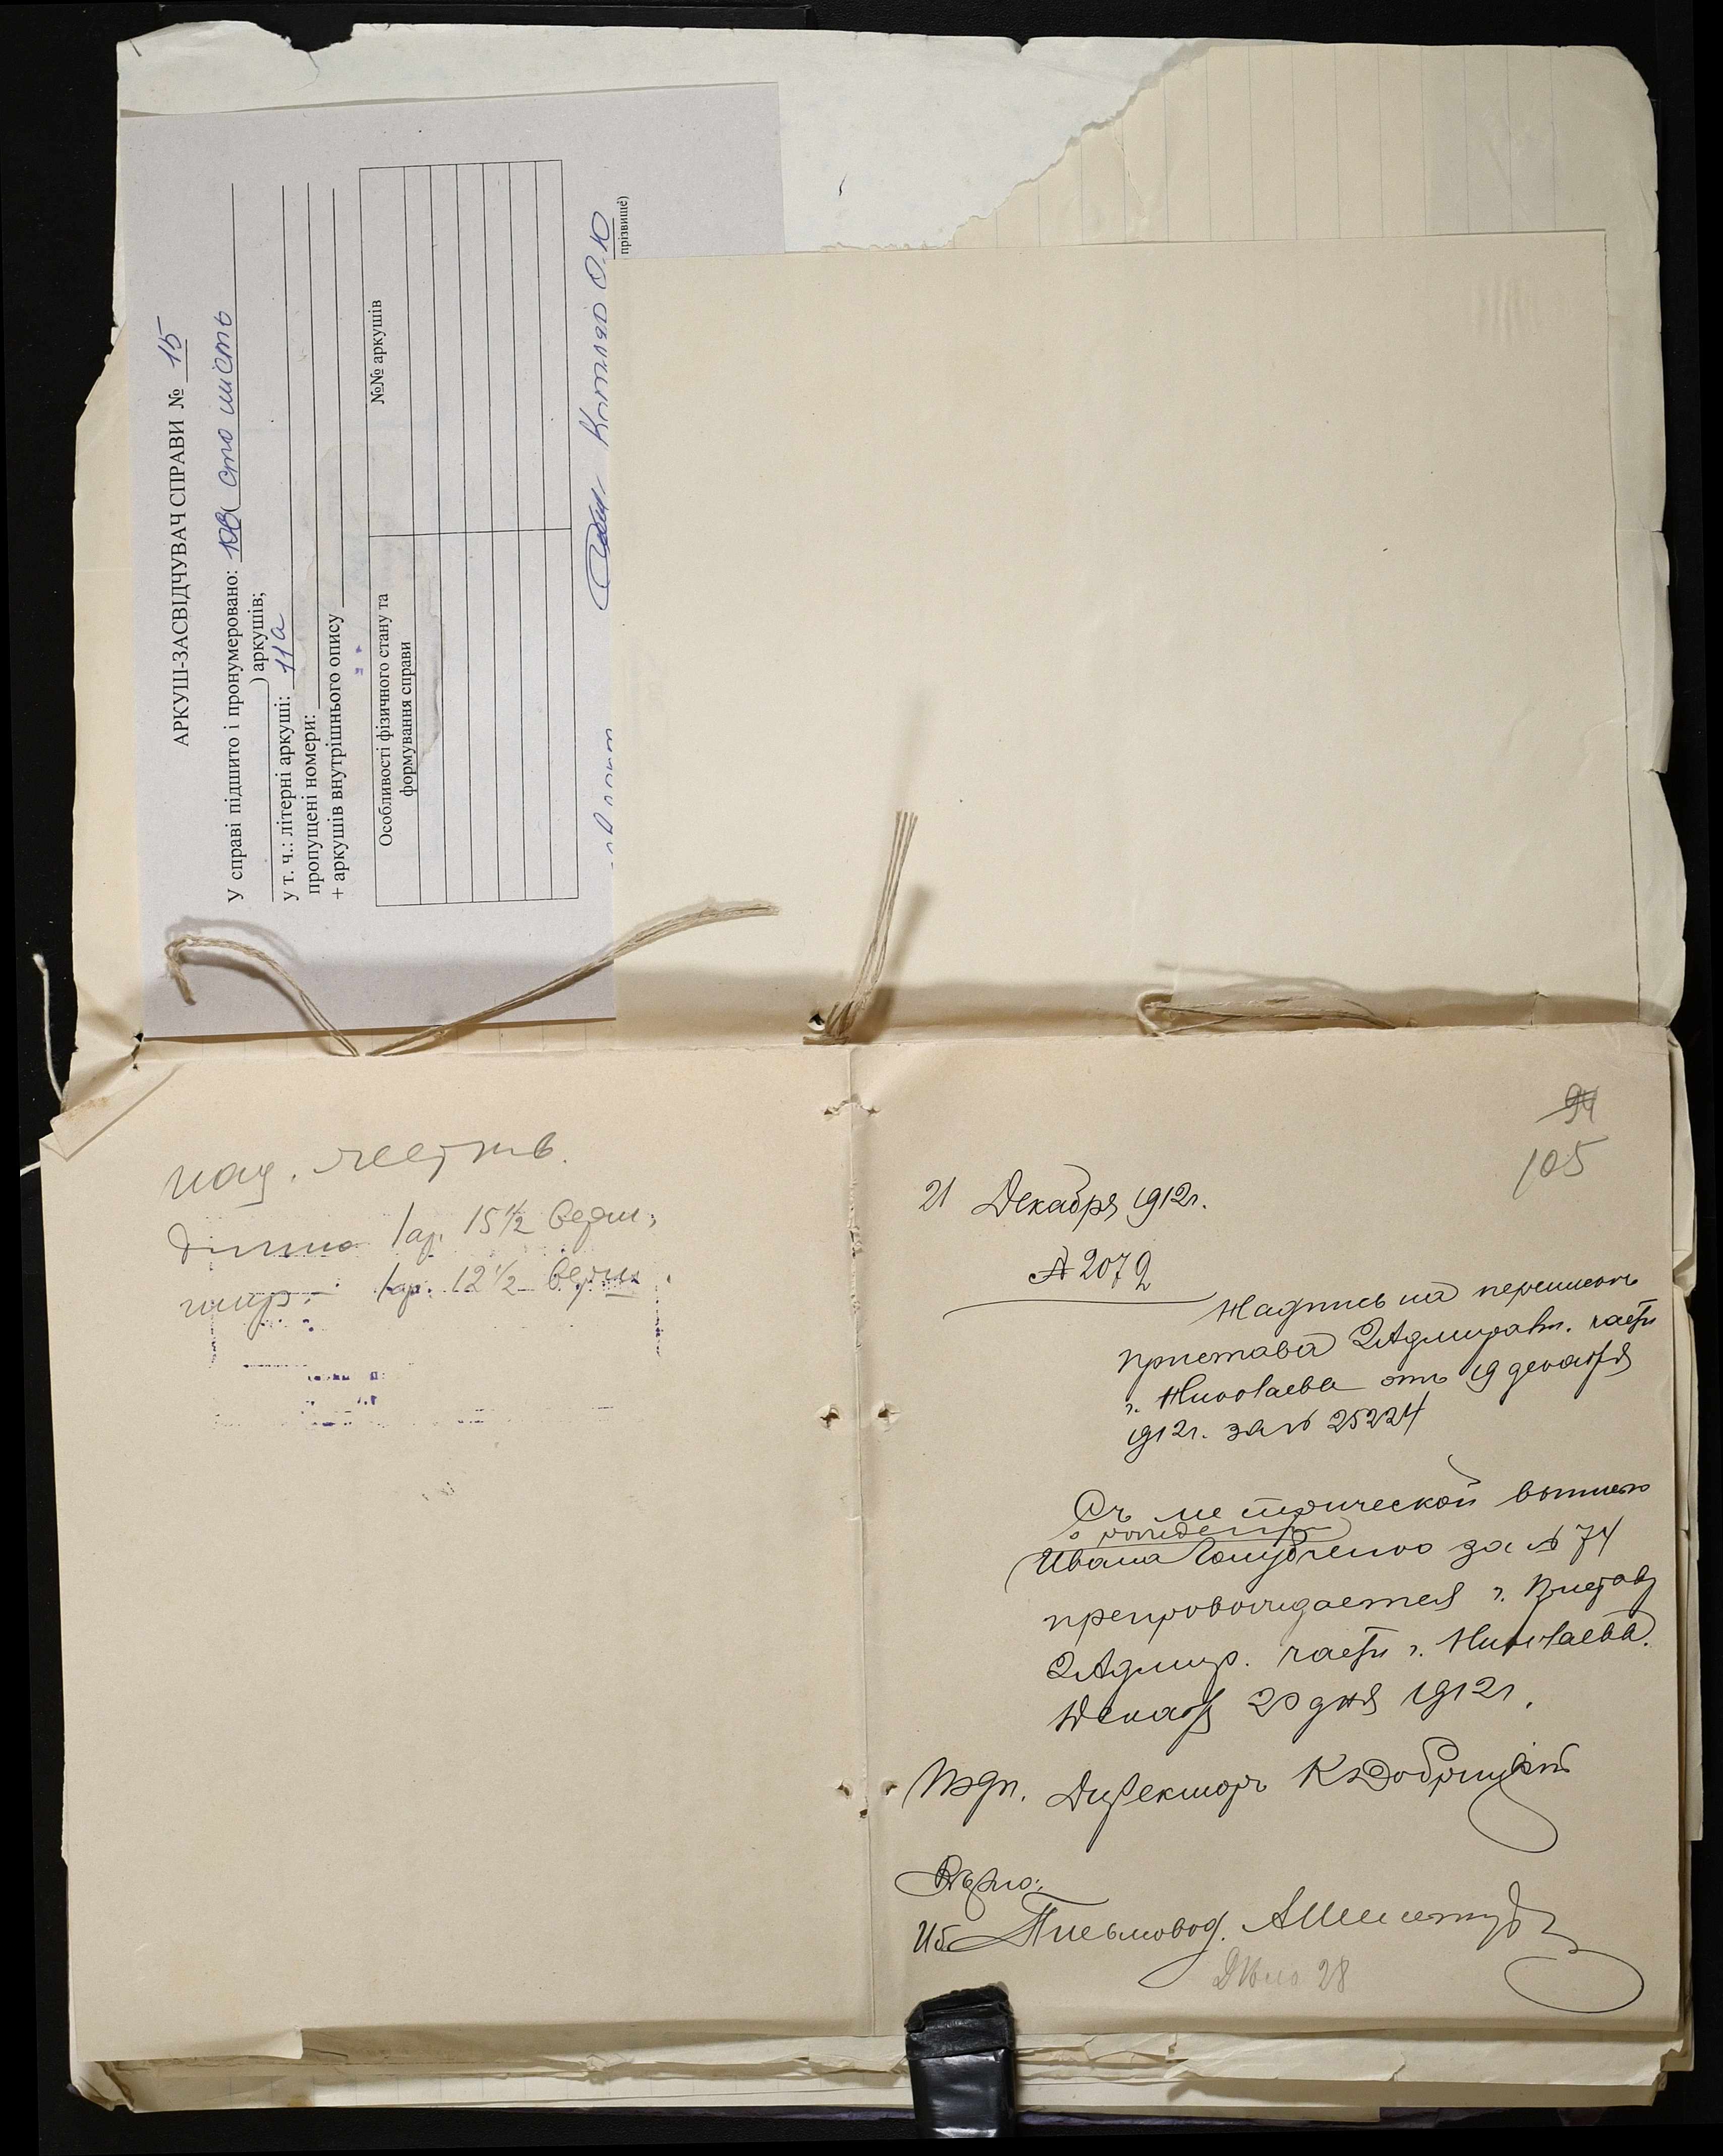 АРКУШ-ЗАСВІДЧУВАЧ СПРАВИ № 15
У справі підшито і пронумеровано: 106 ( сто шість
) аркушів;
у т. ч.: літерні аркуші: 11а
пропущені номери:
+ аркушів внутрішнього опису
Особливості фізичного стану та формування справи
№№ аркушів
Котляр О.Ю
прізвище)
длина 1 ар. 15 1/2 верш.
шир. 1 ар. 12 1/2 верш.
94
105
21 Декабря 1912 г.
№ 2072
Надпись на переписке
пристава 2 Адмиралт. части
г. Николаева отъ 19 декабря
1912 г. за № 25224
Съ метрической выписью
о рожденіи
Ивана за № 74
препровождается г. Приставу
2 Адмир. части г. Николаева.
Декабря 20 дня 1912 г.
Подп. Директоръ К Добр
Вѣрно:
Иб Письмовод. А
Дѣло 28